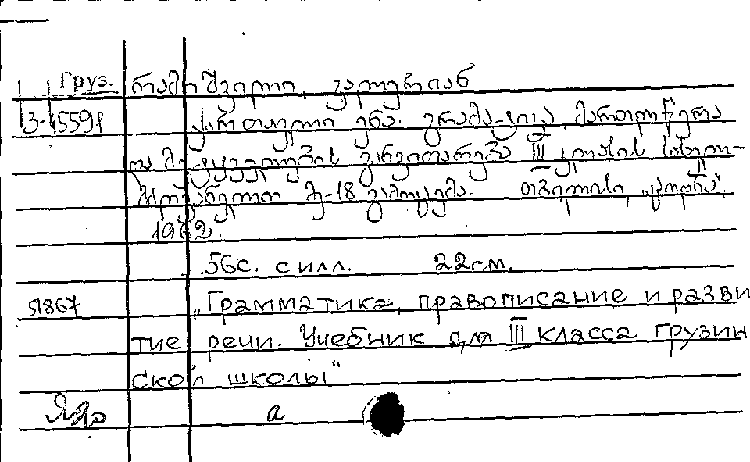 Груз. რამიშვილი, ვალერიან
3-15591 ქართული ენა. გრამატიკა, მართლწერა
და მეტყველების განვითარება III კლასის სახელ-
მძღვანელო მე-18 გამოცემა. თბილისი, „ცოდნა",
1962.
56с. с илл. 22см.
Я867 „Грамматика, правописание и разви
тие речи. Учебник для III класса грузин
ской школы"
а